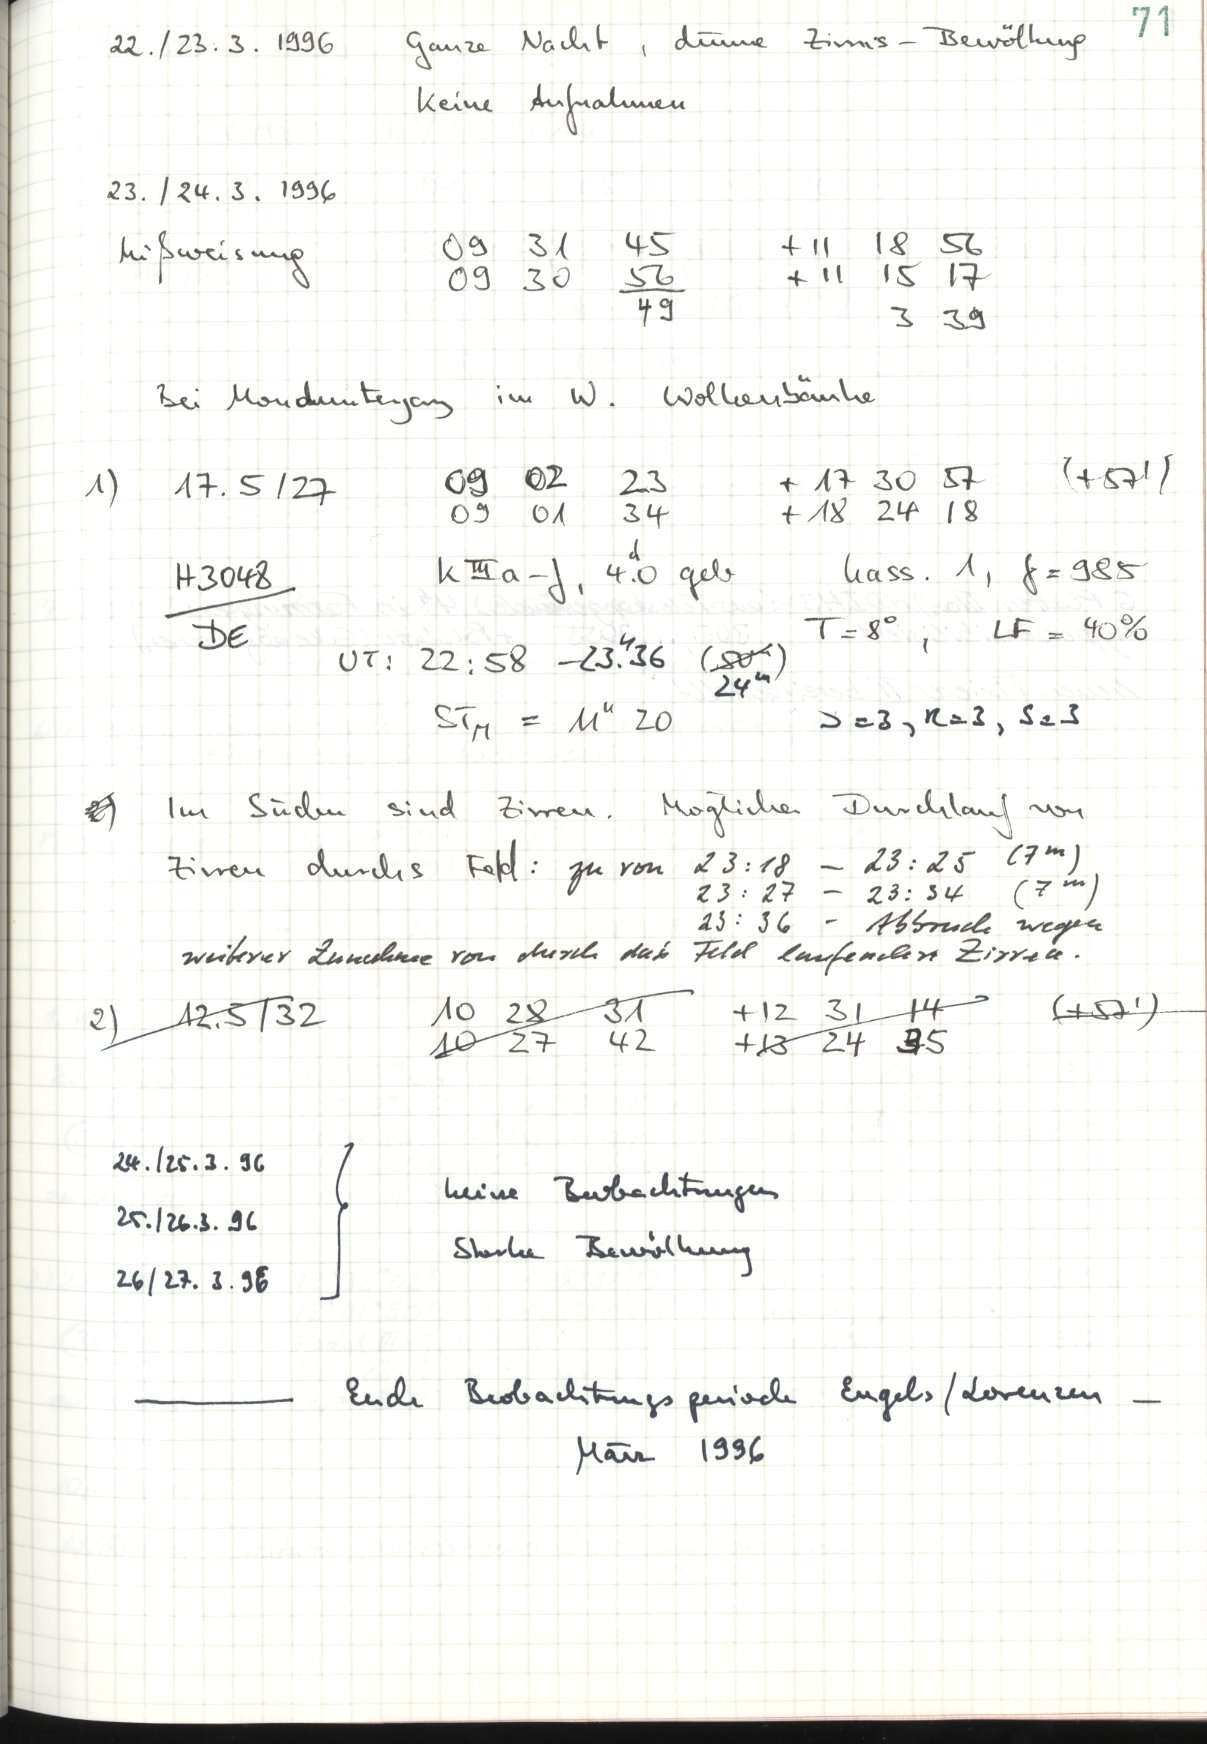 71
22./23.3.1996 Ganze Nacht, dünne Zirrus-Bewölkung
Keine Aufnahmen
23./24.3.1996
Mißweisung 09 31 45 +11 18 56
09 30 56 +11 15 17
49 3 39
Bei Monduntergang im W. Wolkenbänke
1) 17.5/27 09 02 23 +17 30 57 (+57')
09 01 34 +18 24 18
H3048 KIIIa-J, 4.d0 geb Kass. 1, f=985
DE T=8°, LF=40%
UT: 22:58 - 23.h36 (50m)
24m
STM = 11h 20 D=3, R=3, S=3
2) Im Süden sind Zirren. Möglicher Durchlauf von
Zirren durchs Feld: zu von 23:18 - 23:25 (7m)
23:27 - 23:34 (7m)
23:36 - Abbruch wegen
weiterer Zunahme von durch das Feld laufenden Zirren.
2) 12.5/32 10 28 31 +12 31 14 (+57')
10 27 42 +13 24 35
24./25.3.96
keine Beobachtungen
25./26.3.96
Starke Bewölkung
26/27.3.96
Ende Beobachtungsperiode Engels/Lorenzen —
März 1996